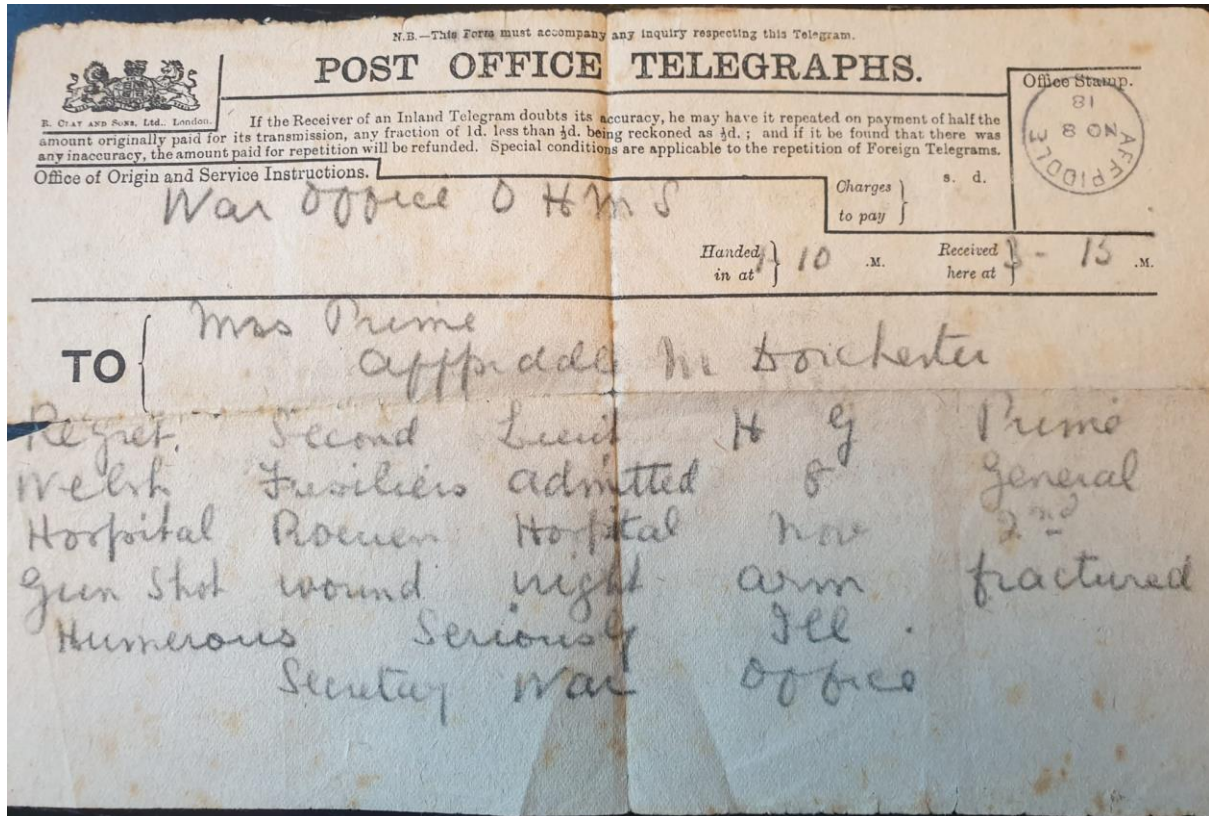 N.B.—This Form must accompany any inquiry respecting this Telegram.
POST OFFICE TELEGRAPHS.
R. CLAY AND SONS, LTD., London.
If the Receiver of an Inland Telegram doubts its accuracy, he may have it repeated on payment of half the
amount originally paid for its transmission, any fraction of 1d. less than ½d. being reckoned as ½d.; and if it be found that there was
any inaccuracy, the amount paid for repetition will be refunded. Special conditions are applicable to the repetition of Foreign Telegrams.
Office Stamp.
AFFPIDDLE
NO 8
18
Office of Origin and Service Instructions.
War Office O H M S
Charges to pay
s. d.
Handed in at 10 .M.
Received here at - 15 .M.
TO
Mrs Prime
Affpiddle Nr Dorchester
Regret Second Lieut H G Prime
Welsh Fusiliers admitted 8 General
Hospital Rouen Hospital Nov 2nd
Gun Shot wound right arm fractured
Humerous Seriously Ill.
Secretary War Office